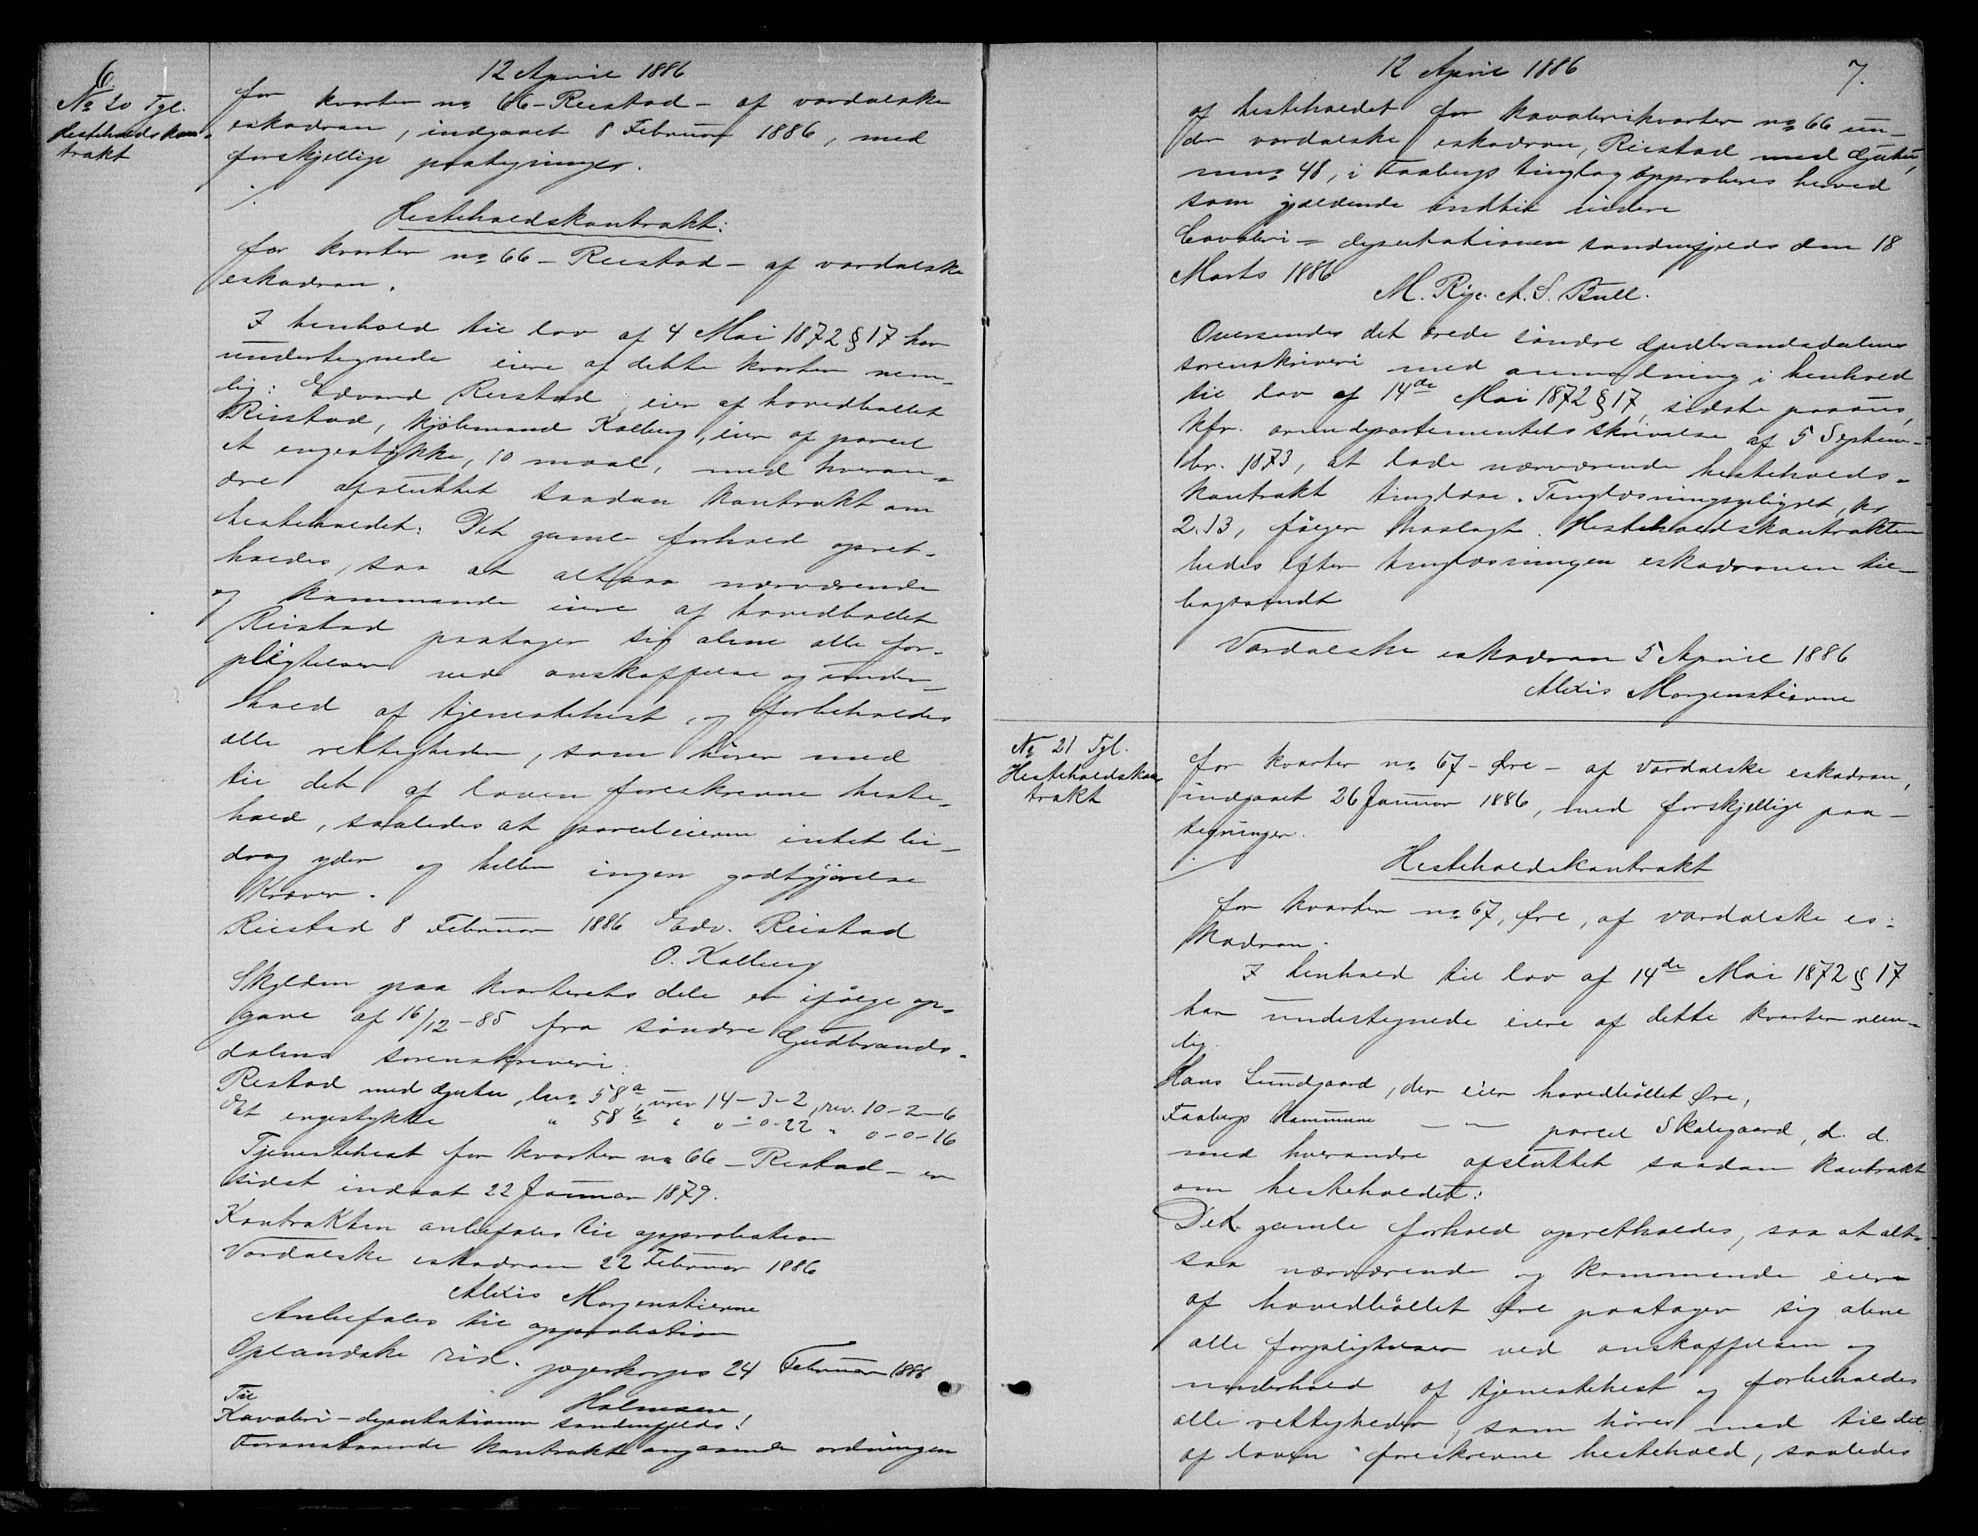 6
12 April 1886
No 20 Tgl.
Hestehold skon-
trakt
for kvarter no 66 – Reistad – af vardalske
eskadron, indgaaet 8 Februar 1886, med
forskjellige paategninger.
Hesteholdskontrakt:
for kvarter no 66 – Reistad – af vardalske
eskadron.
I henhold til lov af 4 Mai 1872 § 17 har
undertegnede eiere af dette kvarter nem-
lig: Edvard Reistad, eier af hovedbøllet
Reistad, Kjøbmand Kalberg, eier af parcel
et engestykke, 10 maal, med hveran-
dre afsluttet saadan kontrakt om
hesteholdet: Det gamle forhold opret-
holdes, saa at altsaa nærværende
og kommende eiere af hovedbøllet
Reistad paatager sig alene alle for-
pligtelser ved anskaffelse og under-
hold af tjenestehest, og forbeholdes
alle rettigheder, som hører med
til det af loven foreskrevne heste-
hold, saaledes at parceleieren intet bi-
drag yder og heller ingen godtgjørelse
kræver.
Reistad 8 Februar 1886 Edv. Reistad
O. Kalberg
Skylden paa kvarterets dele er ifølge op-
gave af 16/12 – 85 fra søndre Gudbrands-
dalens sorenskriveri.
Restad med Gjuter, lno 58a, urev 14 – 3 – 2, rev. 10 – 2 – 6
Et engestykke " 58b " 0 – 0 – 22 " 0 – 0 – 16
Tjenestehest for kvarter no 66 – Restad – er
sidst indsat 22 Januar 1879.
Kontrakten anbefales til approbation
Vardalske eskadron 22 Februar 1886
Alexis Morgenstierne
Anbefales til approbation
Oplandske rid. jægerkorps 24 Februar 1886
Holmsen
Til
Kavaleri – deputationen søndenfjelds!
Foranstaaende kontrakt angaaende ordningen
12 April 1886
7.
af hesteholdet for kavalerikvarter no 66 un-
der vardalske eskadron, Reistad med Gjuter,
mno 48, i Faabergs tinglag approberes herved
som gjældende indtil videre
Cavaleri – deputationen søndenfjelds den 18
Marts 1886
M. Rye. A. S. Bull.
Oversendes det ærede søndre Gudbrandsdalens
sorenskriveri med anmodning i henhold
til lov af 14de Mai 1872 § 17, sidste passus,
kfr. armedepartementets skrivelse af 5 Septem-
ber. 1873, at lade nærværende hesteholds-
kontrakt tinglæse. Tinglæsningsgebyret, kr
2.13, følger vedlagt. Hesteholdskontrakten
bedes efter tinglæsningen eskadronen til-
bagesendt
Vardalske eskadron 5 April 1886
Alexis Morgenstierne
No 21 Tgl.
Hesteholdskon
trakt
for kvarter no 67 – Øre – af vardalske eskadron,
indgaaet 26 Januar 1886, med forskjellige paa-
tegninger.
Hesteholdskontrakt
for kvarter no 67, Øre, af vardalske es-
kadron.
I henhold til lov af 14de Mai 1872 § 17
har undertegnede eiere af dette kvarter nem-
lig.
Hans Lundgaard, der eier hovedbøllet Øre,
Faabergs Kommune – – parcel Skalsgaard, d. d.
med hverandre afsluttet saadan kontrakt
om hesteholdet:
Det gamle forhold opretholdes, saa at alt-
saa nærværende og kommende eiere
af hovedbøllet Øre paatager sig alene
alle forpligtelser ved anskaffelsen og
underhold af tjenestehest og forbeholdes
alle rettigheder, som hører med til det
af loven foreskrevne hestehold, saaledes